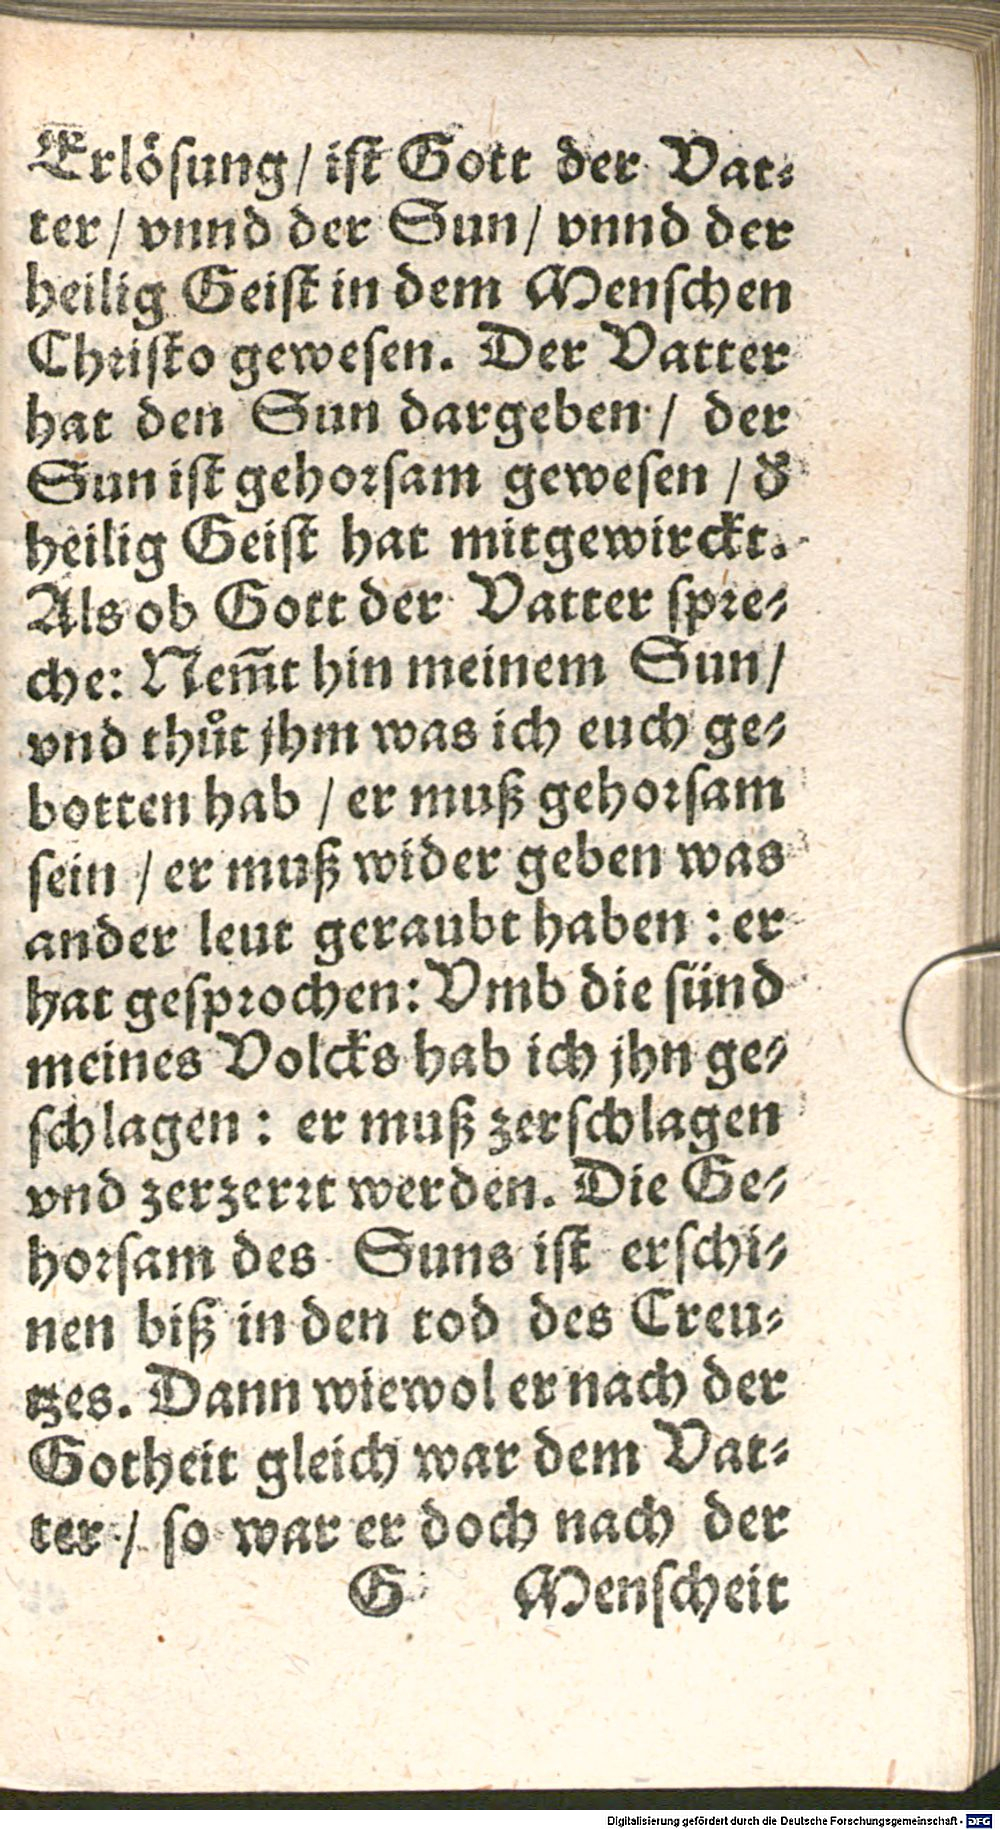 Erlösung / ist Gott der Vat⸗
ter / vnnd der Sun / vnnd der
heilig Geist in dem Menschen
Christo gewesen. Der Vatter
hat den Sun dargeben / der
Sun ist gehorsam gewesen / d̕
heilig Geist hat mitgewirckt.
Als ob Gott der Vatter spre⸗
che: Nem̃t hin meinem Sun /
vnd thůt jhm was ich euch ge⸗
botten hab / er muß gehorsam
sein / er muß wider geben was
ander leut geraubt haben : er
hat gesprochen: Vmb die sünd
meines Volcks hab ich jhn ge⸗
schlagen : er muß zerschlagen
vnd zerzerrt werden. Die Ge⸗
horsam des Suns ist erschi⸗
nen biß in den tod des Creu⸗
tzes. Dann wiewol er nach der
Gotheit gleich war dem Vat⸗
ter / so war er doch nach der
G Menscheit
Digitalisierung gefördert durch die Deutsche Forschungsgemeinschaft - DFG